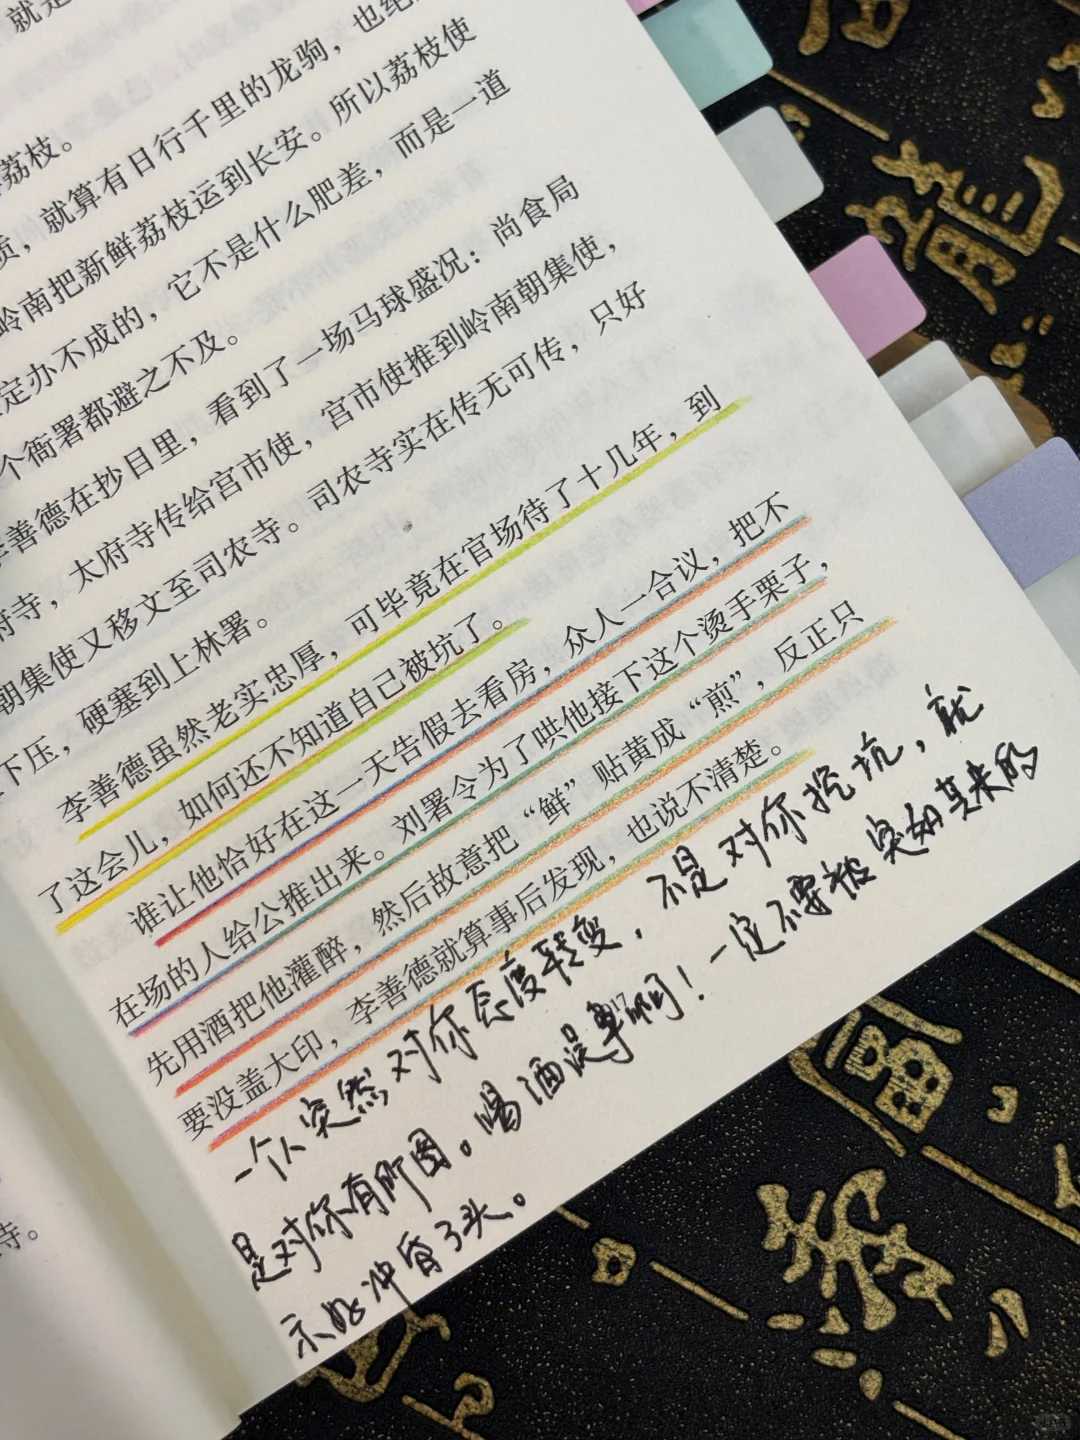 就是
荔枝。
就算有日行千里的龙驹，也绝
岭南把新鲜荔枝运到长安。所以荔枝使
定办不成的，它不是什么肥差，而是一道
个衙署都避之不及。
李善德在抄目里，看到了一场马球盛况：尚食局
府寺，太府寺传给宫市使，宫市使推到岭南朝集使，
朝集使又移文至司农寺。司农寺实在传无可传，只好
下压，硬塞到上林署。
李善德虽然老实忠厚，可毕竟在官场待了十几年，到
了这会儿，如何还不知道自己被坑了。
谁让他恰好在这一天告假去看房，众人一合议，把不
在场的人给公推出来。刘署令为了哄他接下这个烫手栗子，
先用酒把他灌醉，然后故意把“鲜”贴黄成“煎”，反正只
要没盖大印，李善德就算事后发现，也说不清楚。
一个人突然对你态度转变，不是对你挖坑，就
是对你有所图。喝酒误事啊！一定不要被突如其来的
示好冲昏了头。
寺。